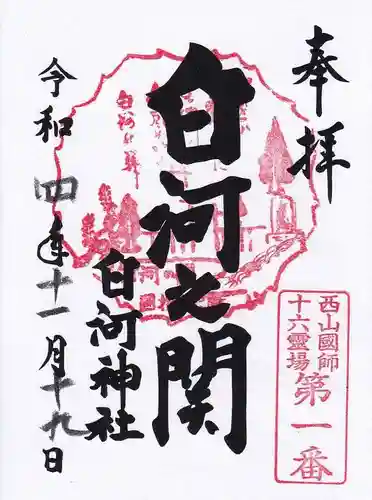 奉拝
白河之関
白河神社
令和四年十一月十九日
西山國師
十六靈場
第一番